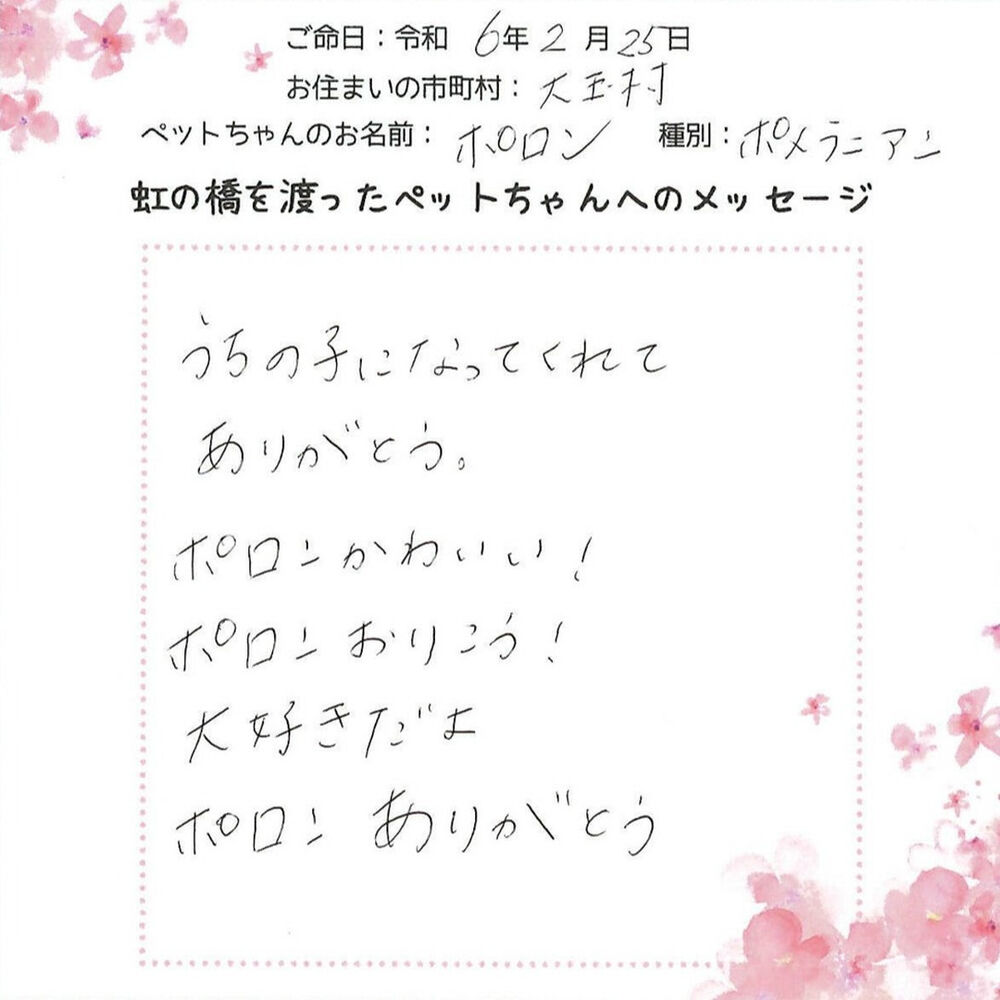 ご命日：令和 6年 2月 25日
お住まいの市町村：大玉村
ペットちゃんのお名前：ポロン 種別：ポメラニアン
虹の橋を渡ったペットちゃんへのメッセージ
うちの子になってくれて
ありがとう。
ポロンかわいい！
ポロンおりこう！
大好きだよ
ポロン ありがとう